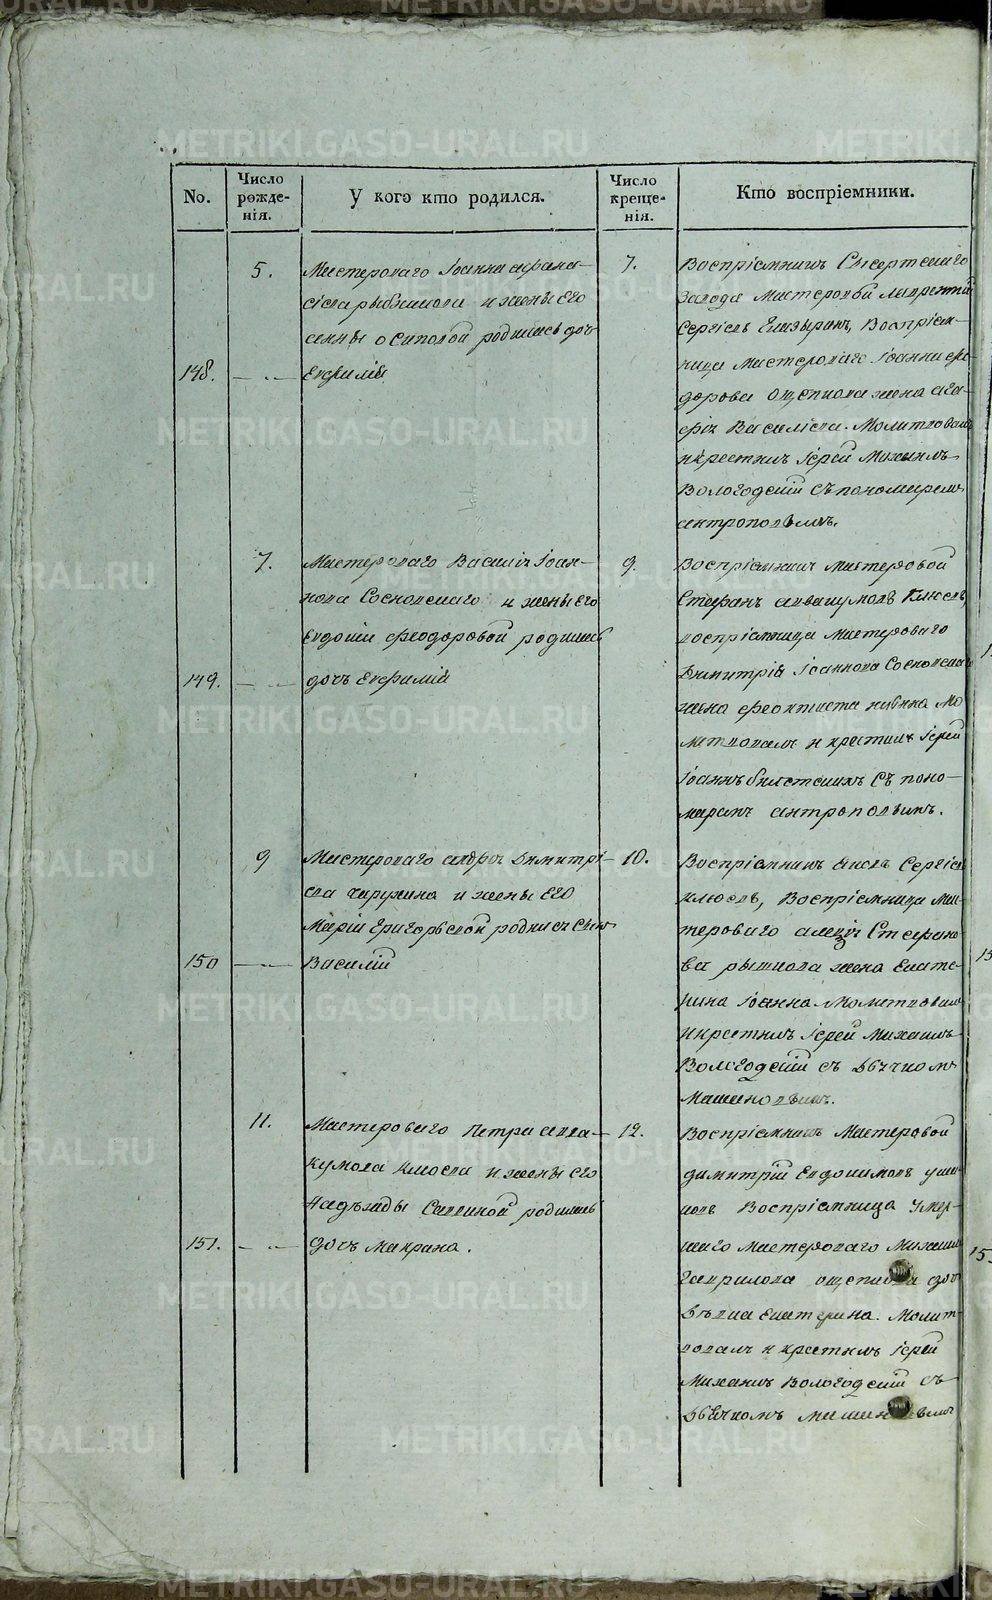 METRIKI.GASO-URAL.RU
No.
Число рожде-нія.
У кого кто родился.
Число креще-нія.
Кто воспріемники.
5.
Мастероваго Іоанна Афана-
сіева рыбникова и жены его
Анны Осиповой родилась дочь
148.
Евфимія
7.
Воспріемникъ Сысертскаго
завода Мастеровой Лаврентій
Сергіевъ Воспріем-
ница Мастероваго Іоанна Фе-
дорова жена Ага-
Васильева. Молитвовалъ
и крестилъ Іерей Михаилъ
Вологодскій съ пономаремъ
Антроповымъ.
7.
Мастероваго Василія Іоан-
нова Сосновскаго и жены его
Евдокіи Феодоровой родилась
149.
дочь Евфимія
9.
Воспріемникъ Мастеровой
Стефанъ Аввакумовъ Клюевъ
воспріемница Мастероваго
Димитрія Іоаннова Сосновскаго
жена Феоктиста Мо
литвовалъ и крестилъ Іерей
Іоаннъ съ поно-
маремъ Антроповымъ.
9
Мастероваго Димитрі-
ева и жены его
Маріи Григорьевой родился сынъ
150
Василій
10.
Воспріемникъ Сергіев
Клюевъ, Воспріемница Мас-
тероваго Алексія Стефано-
ва жена Екате-
рина Іоанна Молитвовалъ
и крестилъ Іерей Михаилъ
Вологодскій съ дьячкомъ
11.
Мастероваго Петра Авва-
кумова Клюева и жены его
Надежды Саввиной родилась
151.
дочь Макрина.
12.
Воспріемникъ Мастеровой
Димитрій Евдокимовъ
Воспріемница умер-
шаго Мастероваго Михаила
Гаврилова
Екатерина. Молит-
вовалъ и крестилъ Іерей
Михаилъ Вологодскій съ
дьячкомъ